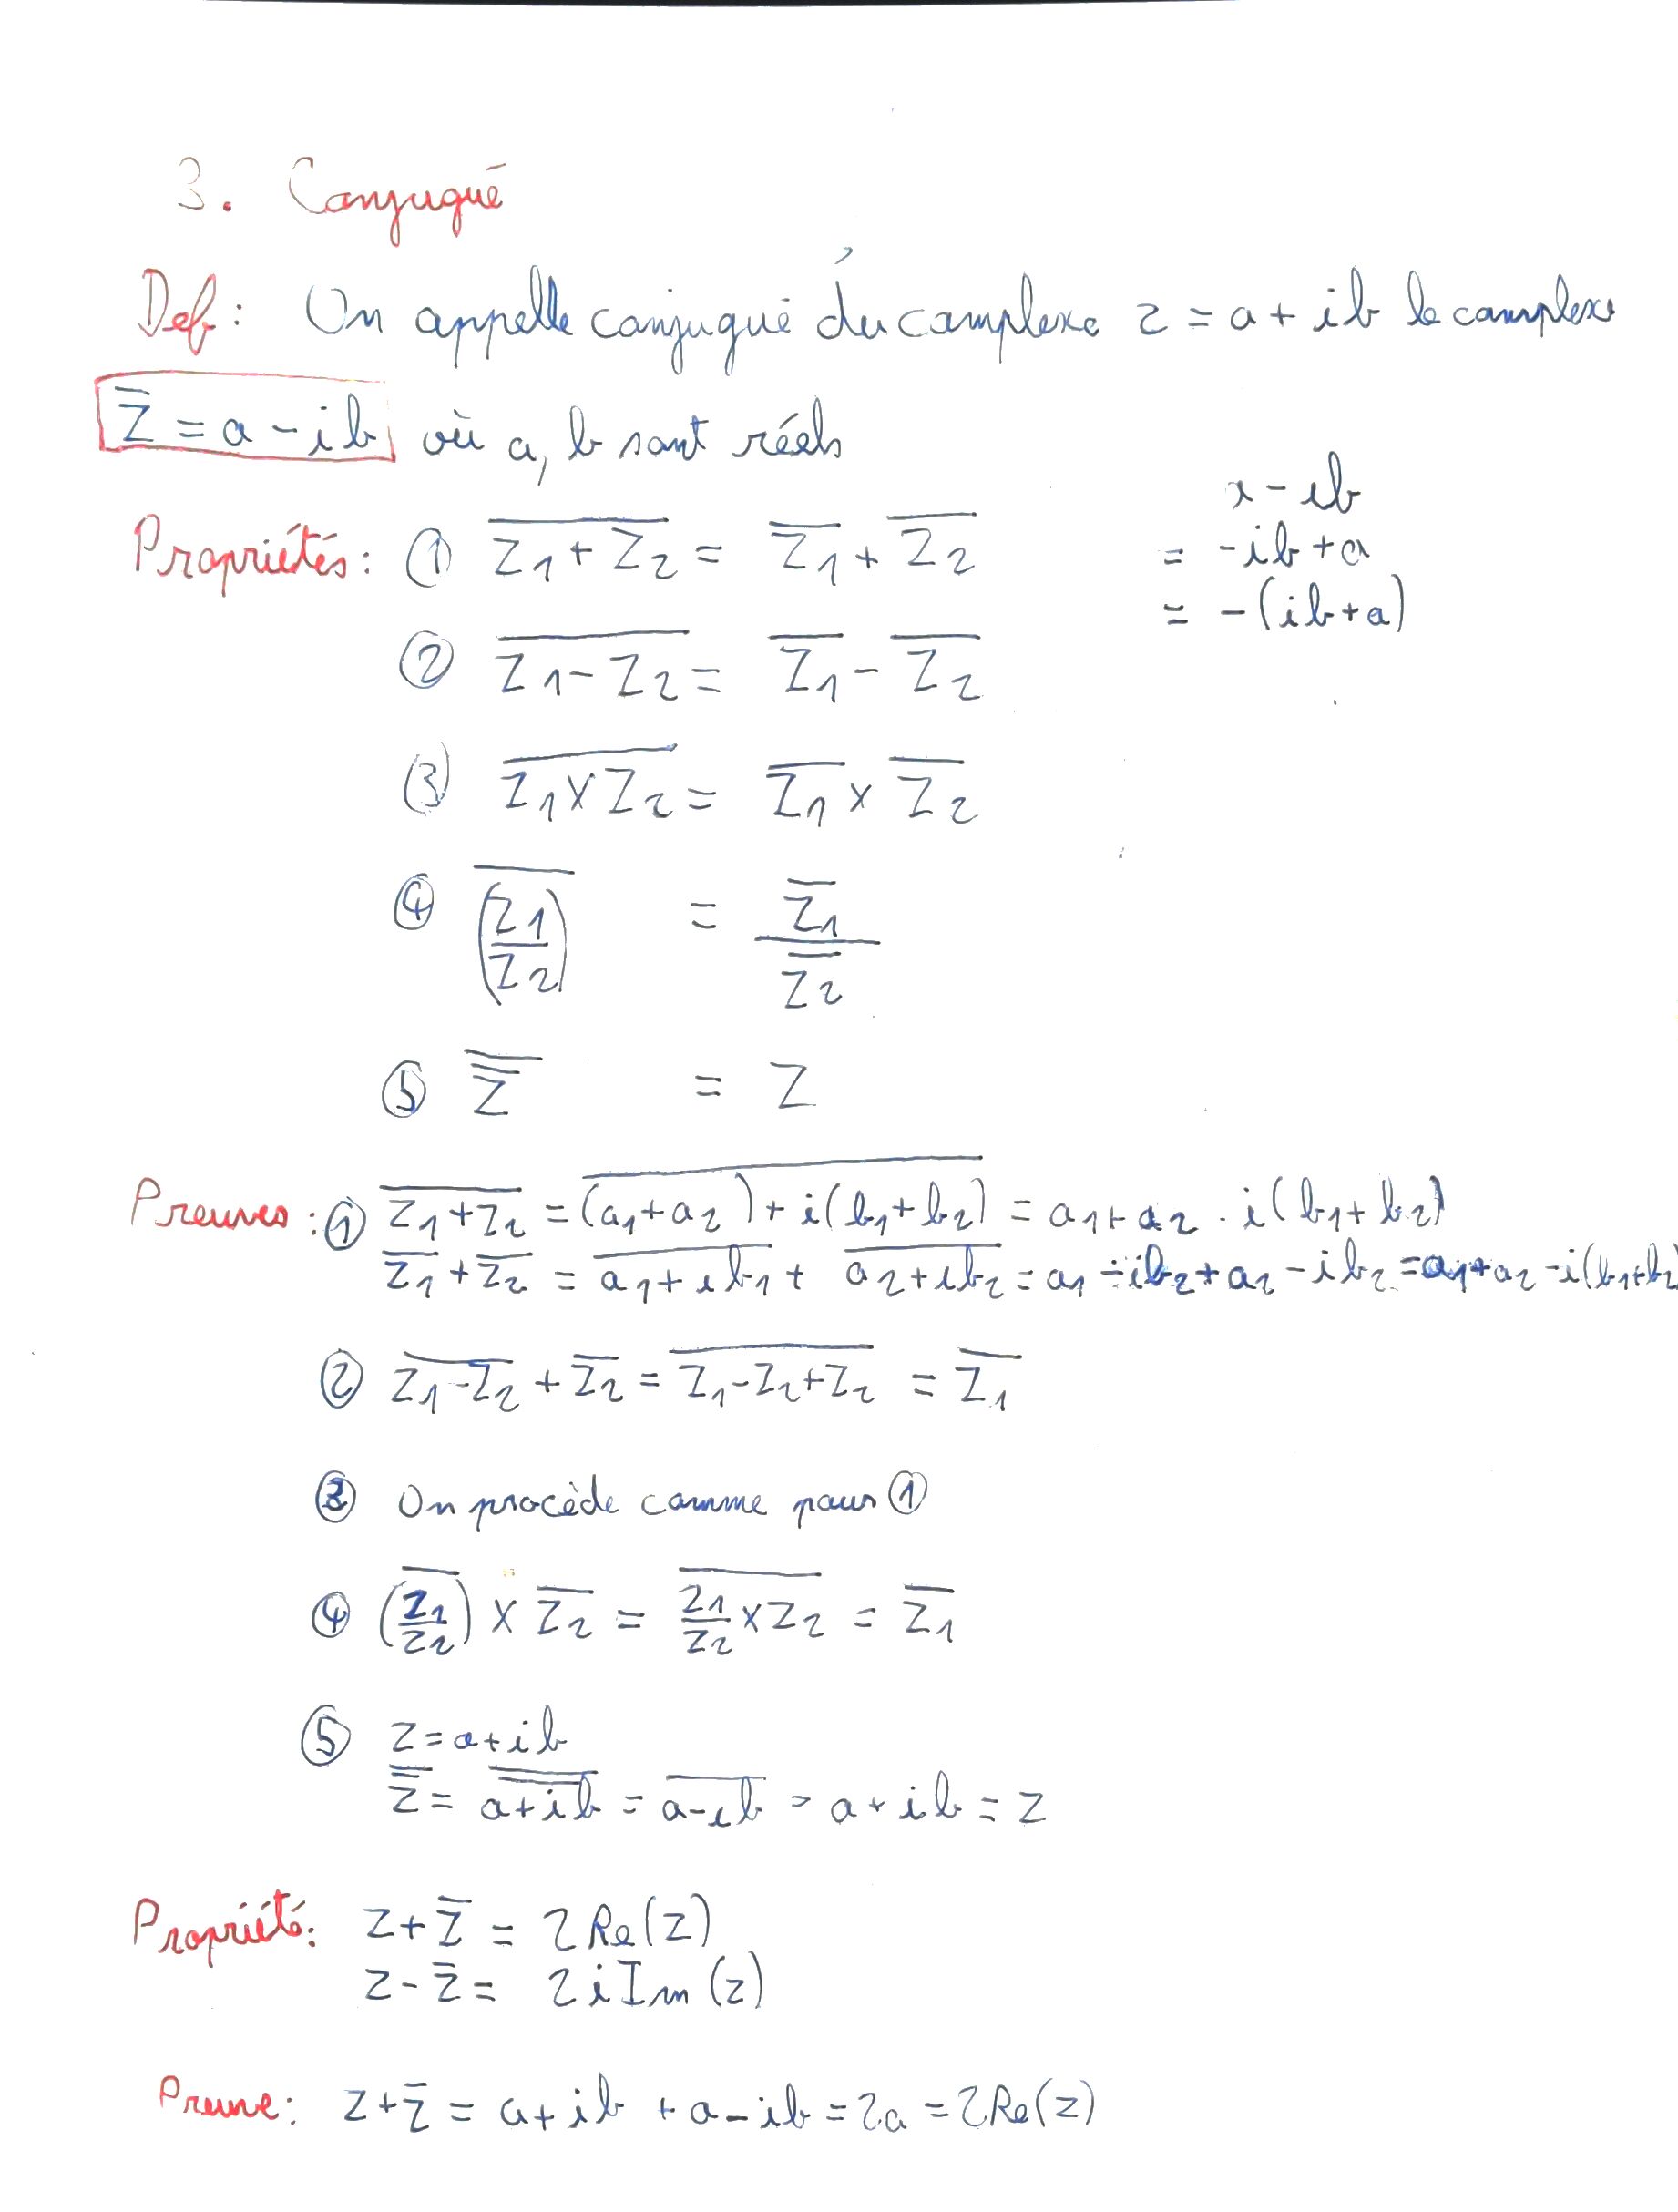 3. Conjugué
Def : On appelle conjugué du complexe z = a + ib le complexe
z̅ = a - ib où a, b sont réels
x - ib
= -ib + a
= -(ib+a)
Propriétés : ① \overline{Z₁+Z₂} = \overline{Z₁} + \overline{Z₂}
② \overline{Z₁-Z₂} = \overline{Z₁} - \overline{Z₂}
③ \overline{Z₁×Z₂} = \overline{Z₁} × \overline{Z₂}
④ \overline{(Z₁/Z₂)} = \overline{Z₁} / \overline{Z₂}
⑤ \overline{\overline{Z}} = Z
Preuves : ① \overline{Z₁+Z₂} = \overline{(a₁+a₂)+i(b₁+b₂)} = a₁+a₂ - i(b₁+b₂)
\overline{Z₁} + \overline{Z₂} = \overline{a₁+ib₁} + \overline{a₂+ib₂} = a₁-ib₂+a₂-ib₂ = a₁+a₂-i(b₁+b₂
② \overline{Z₁-Z₂} + \overline{Z₂} = \overline{Z₁-Z₂+Z₂} = \overline{Z₁}
③ On procède comme pour ①
④ \overline{(Z₁/Z₂)} × \overline{Z₂} = \overline{Z₁/Z₂ × Z₂} = \overline{Z₁}
⑤ z = a+ib
\overline{\overline{z}} = \overline{\overline{a+ib}} = \overline{a-ib} = a+ib = z
Propriété : z + z̅ = 2Re(z)
z - z̅ = 2iIm(z)
Preuve : z + z̅ = a+ib + a-ib = 2a = 2Re(z)